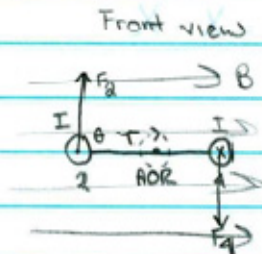 Front view
F₂ B
I θ r I
2 AOR 4
F₄